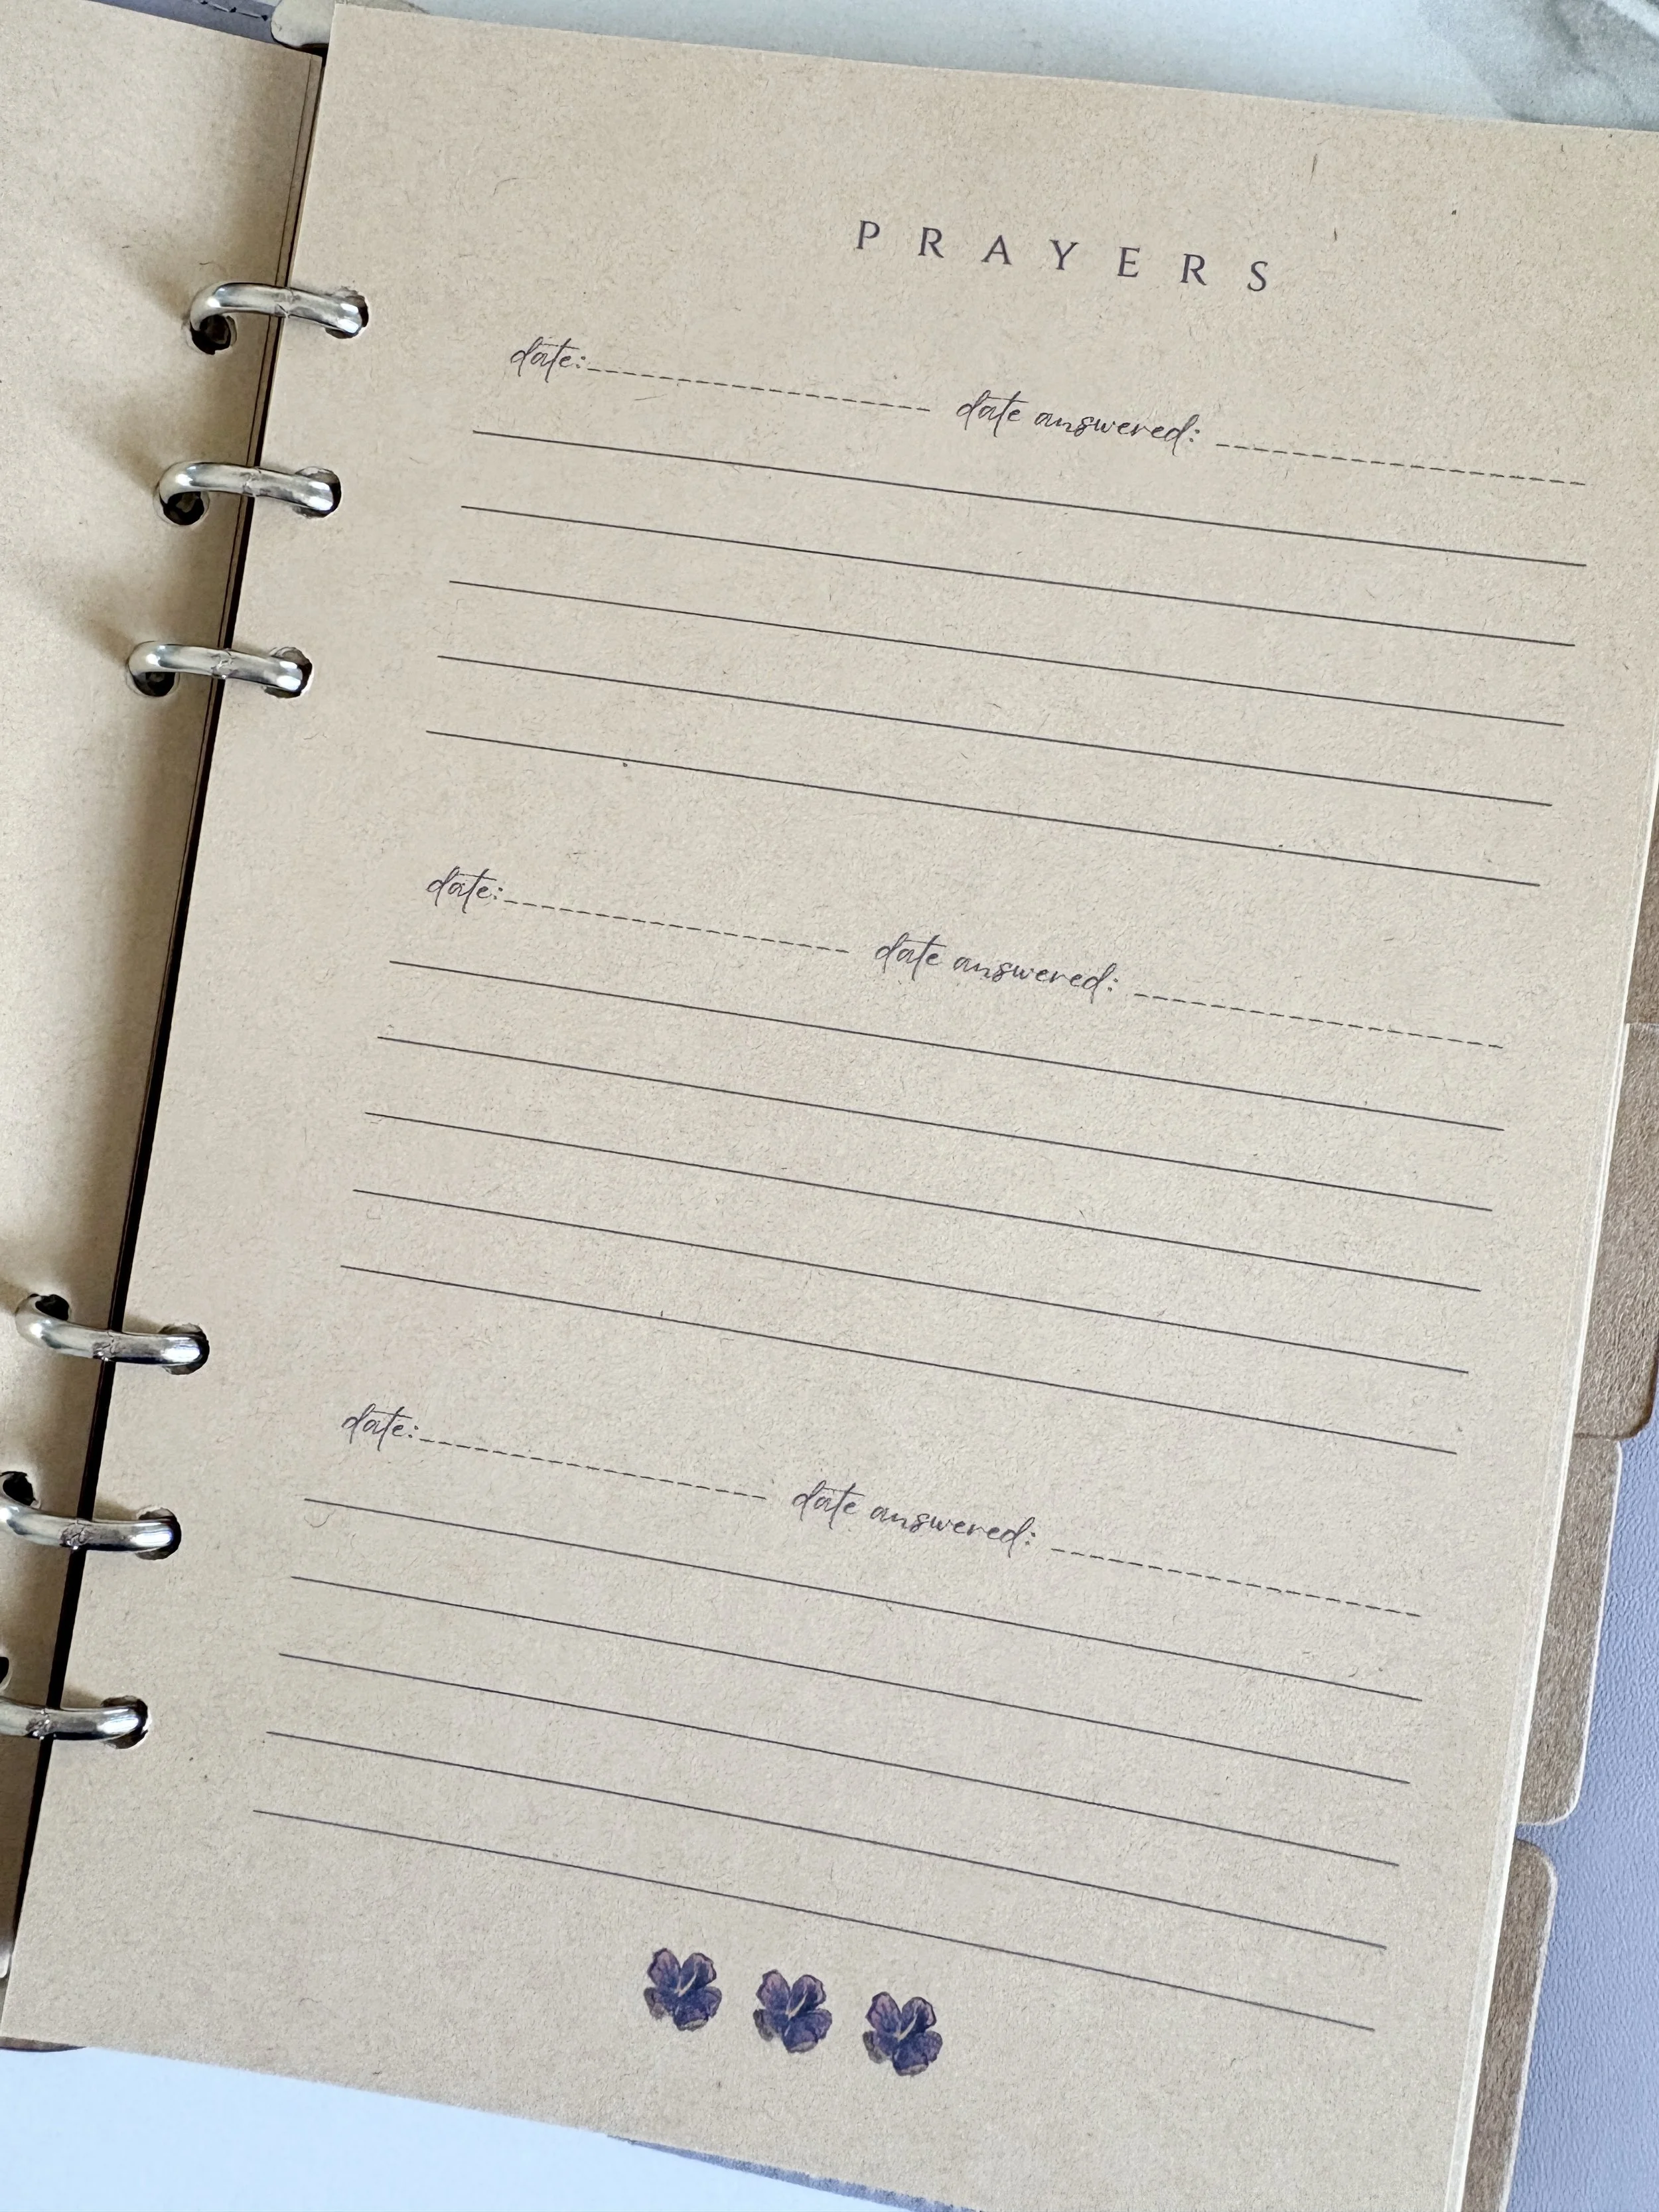 PRAYERS
date: date answered:
date: date answered:
date: date answered: